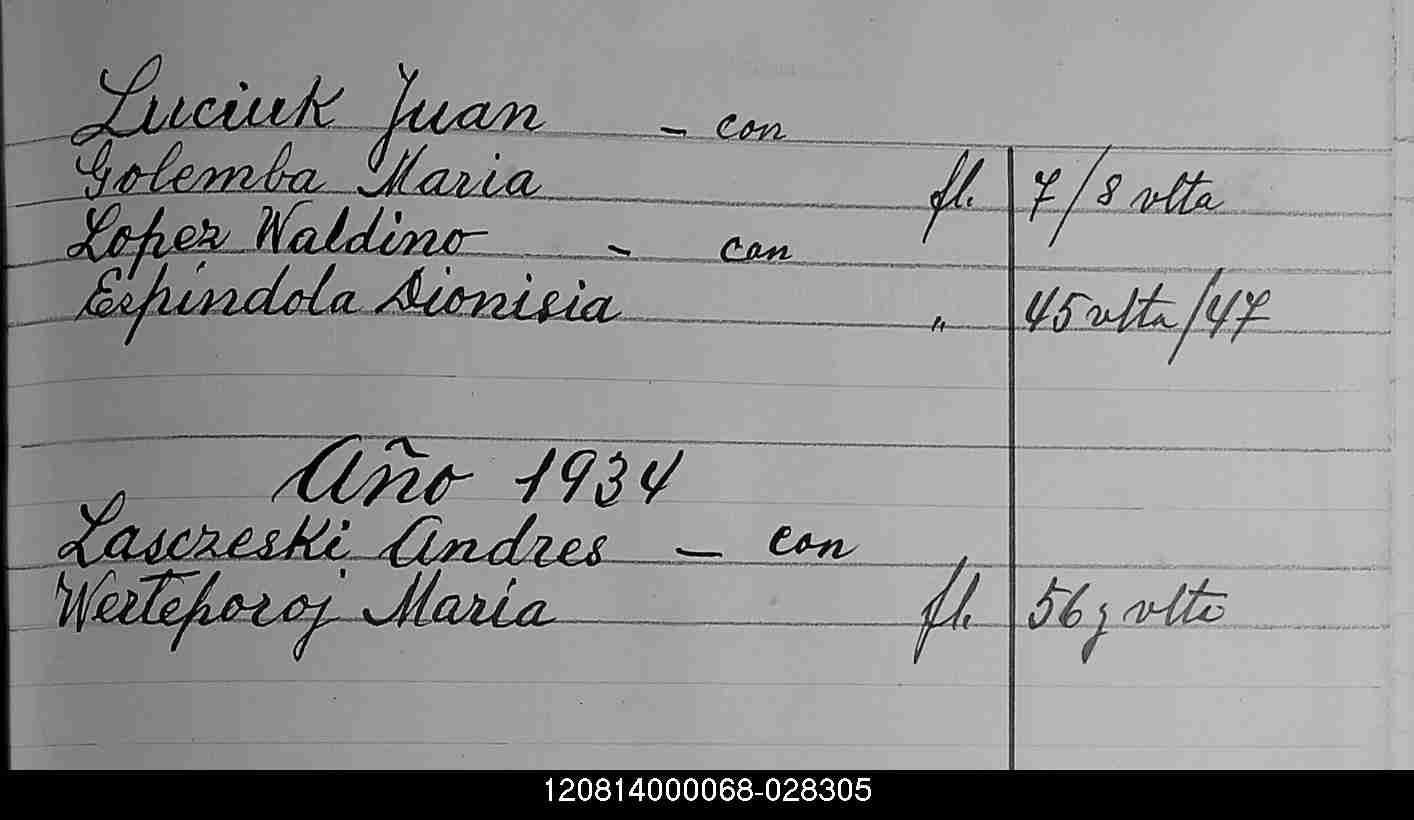 Luciuk Juan - con
Golemba Maria fl. 7/8 vlta
Lopez Waldino - con
Espindola Dionisia " 45 vlta/47
Año 1934
Lasczeski Andres - con
Werteporoj Maria fl. 56 y vlto
120814000068-028305